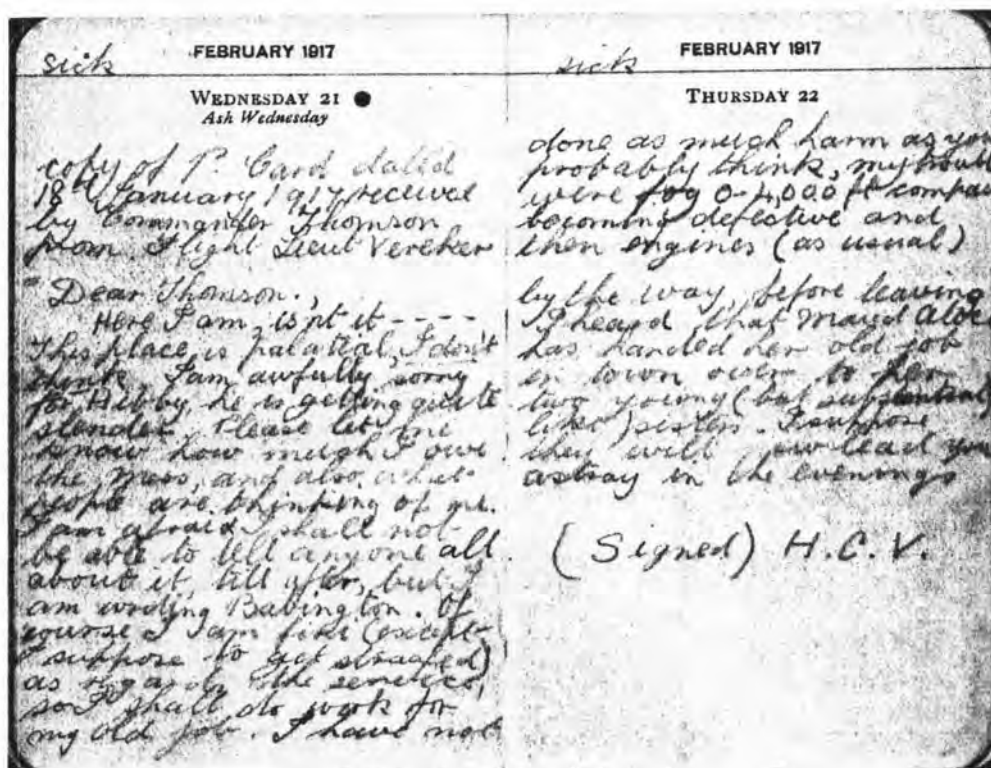 FEBRUARY 1917
sick
WEDNESDAY 21
Ash Wednesday
copy of P. Card dated
18th January 1917 received
by Commander Thomson
from Flight Lieut Vereker
"Dear Thomson,
Here I am, isnt it - - - -
This place is palatial, I don't
think. I am awfully sorry
for Hibby, he is getting quite
slender. Please let me
know how much I owe
the Mess, and also what
people are thinking of me.
I am afraid I shall not
be able to tell anyone all
about it, till after, but I
am writing Babington. Of
course I am (except
I suppose to get strafed)
as regards the services,
so I shall do work for
my old job. I have not
FEBRUARY 1917
sick
THURSDAY 22
done as much harm as you
probably think, my
were fog 0-4,000 ft
becoming defective and
then engines (as usual)
by the way, before leaving
I heard that Maud
has handed her old job
in town over to her
two young (but
like) sisters. I suppose
they will now lead you
astray in the evenings
(Signed) H.C.V.